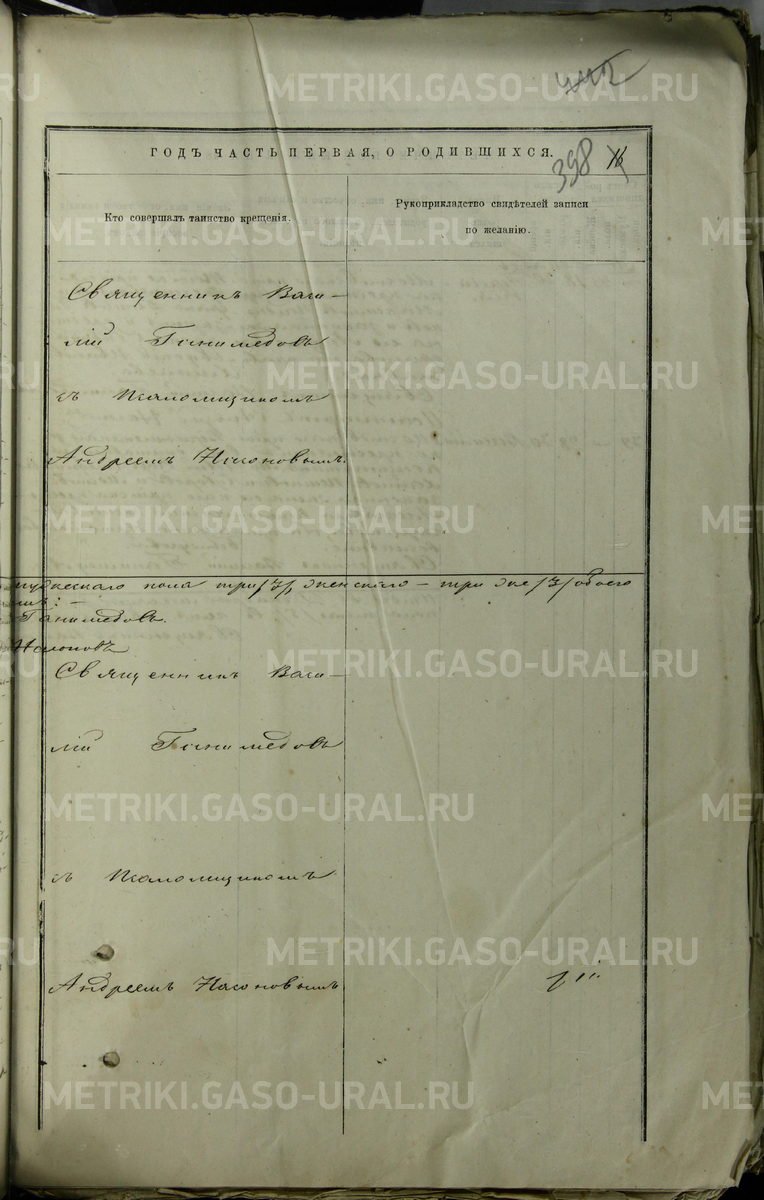 442
ГОДЪ ЧАСТЬ ПЕРВАЯ, О РОДИВШИХСЯ.
398
16
Кто совершалъ таинство крещенія.
Рукоприкладство свидѣтелей записи
по желанію.
Священникъ Васи-
лій Ганимедовъ
съ Псаломщикомъ
Андреемъ Насоновымъ.
мужескаго пола три /3/, женскаго – три же /3/ обоего
Ганимедовъ.
Насоновъ
Священникъ Васи-
лій Ганимедовъ
съ Псаломщикомъ
Андреемъ Насоновымъ
METRIKI.GASO-URAL.RU